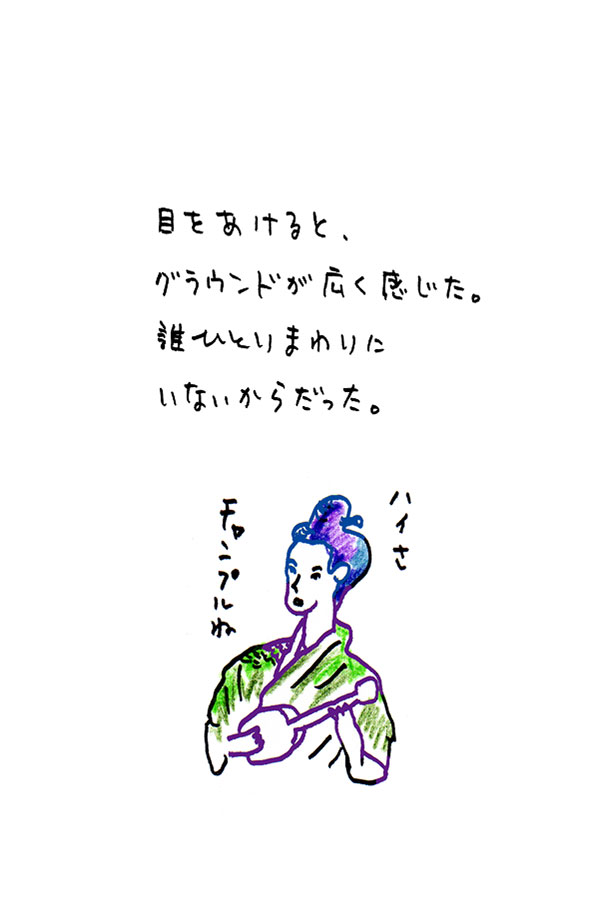 目をあけると、
グラウンドが広く感じた。
誰ひとりまわりに
いないからだった。
ハイさ
チャンプルね